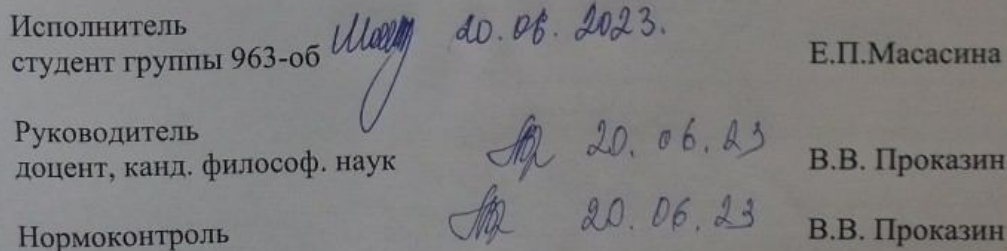 Исполнитель
студент группы 963-об 20.06.2023. Е.П.Масасина
Руководитель
доцент, канд. философ. наук 20.06.23 В.В. Проказин
Нормоконтроль 20.06.23 В.В. Проказин